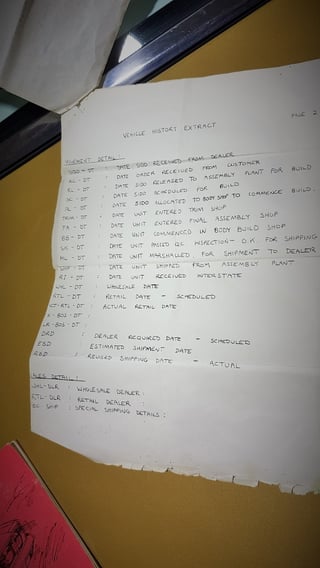 VEHICLE HISTORY EXTRACT
PAGE 2
MOVEMENT DETAIL:
SIDO - DT : DATE SIDO RECEIVED FROM DEALER
AL - DT : DATE ORDER RECEIVED FROM CUSTOMER
RL - DT : DATE SIDO RELEASED TO ASSEMBLY PLANT FOR BUILD
SC - DT : DATE SIDO SCHEDULED FOR BUILD
DATE SIDO ALLOCATED TO BODY SHOP TO COMMENCE BUILD.
TRIM - DT : DATE UNIT ENTERED TRIM SHOP
FA - DT : DATE UNIT ENTERED FINAL ASSEMBLY SHOP
BB - DT : DATE UNIT COMMENCED IN BODY BUILD SHOP
OK - DT : DATE UNIT PASSED Q.C. INSPECTION - O.K. FOR SHIPPING
ML - DT : DATE UNIT MARSHALLED FOR SHIPMENT TO DEALER
SHP - DT : DATE UNIT SHIPPED FROM ASSEMBLY PLANT
RI - DT : DATE UNIT RECEIVED INTERSTATE
WHL - DT : WHOLESALE DATE
RTL - DT : RETAIL DATE - SCHEDULED
CT-RTL-DT : ACTUAL RETAIL DATE
K-BOS-DT :
LK-BOS-DT :
DRD : DEALER REQUIRED DATE - SCHEDULED
ESD ESTIMATED SHIPMENT DATE
RSD : REVISED SHIPPING DATE - ACTUAL
SALES DETAIL:
WHL-DLR : WHOLESALE DEALER:
RTL-DLR : RETAIL DEALER :
SHIP : SPECIAL SHIPPING DETAILS: